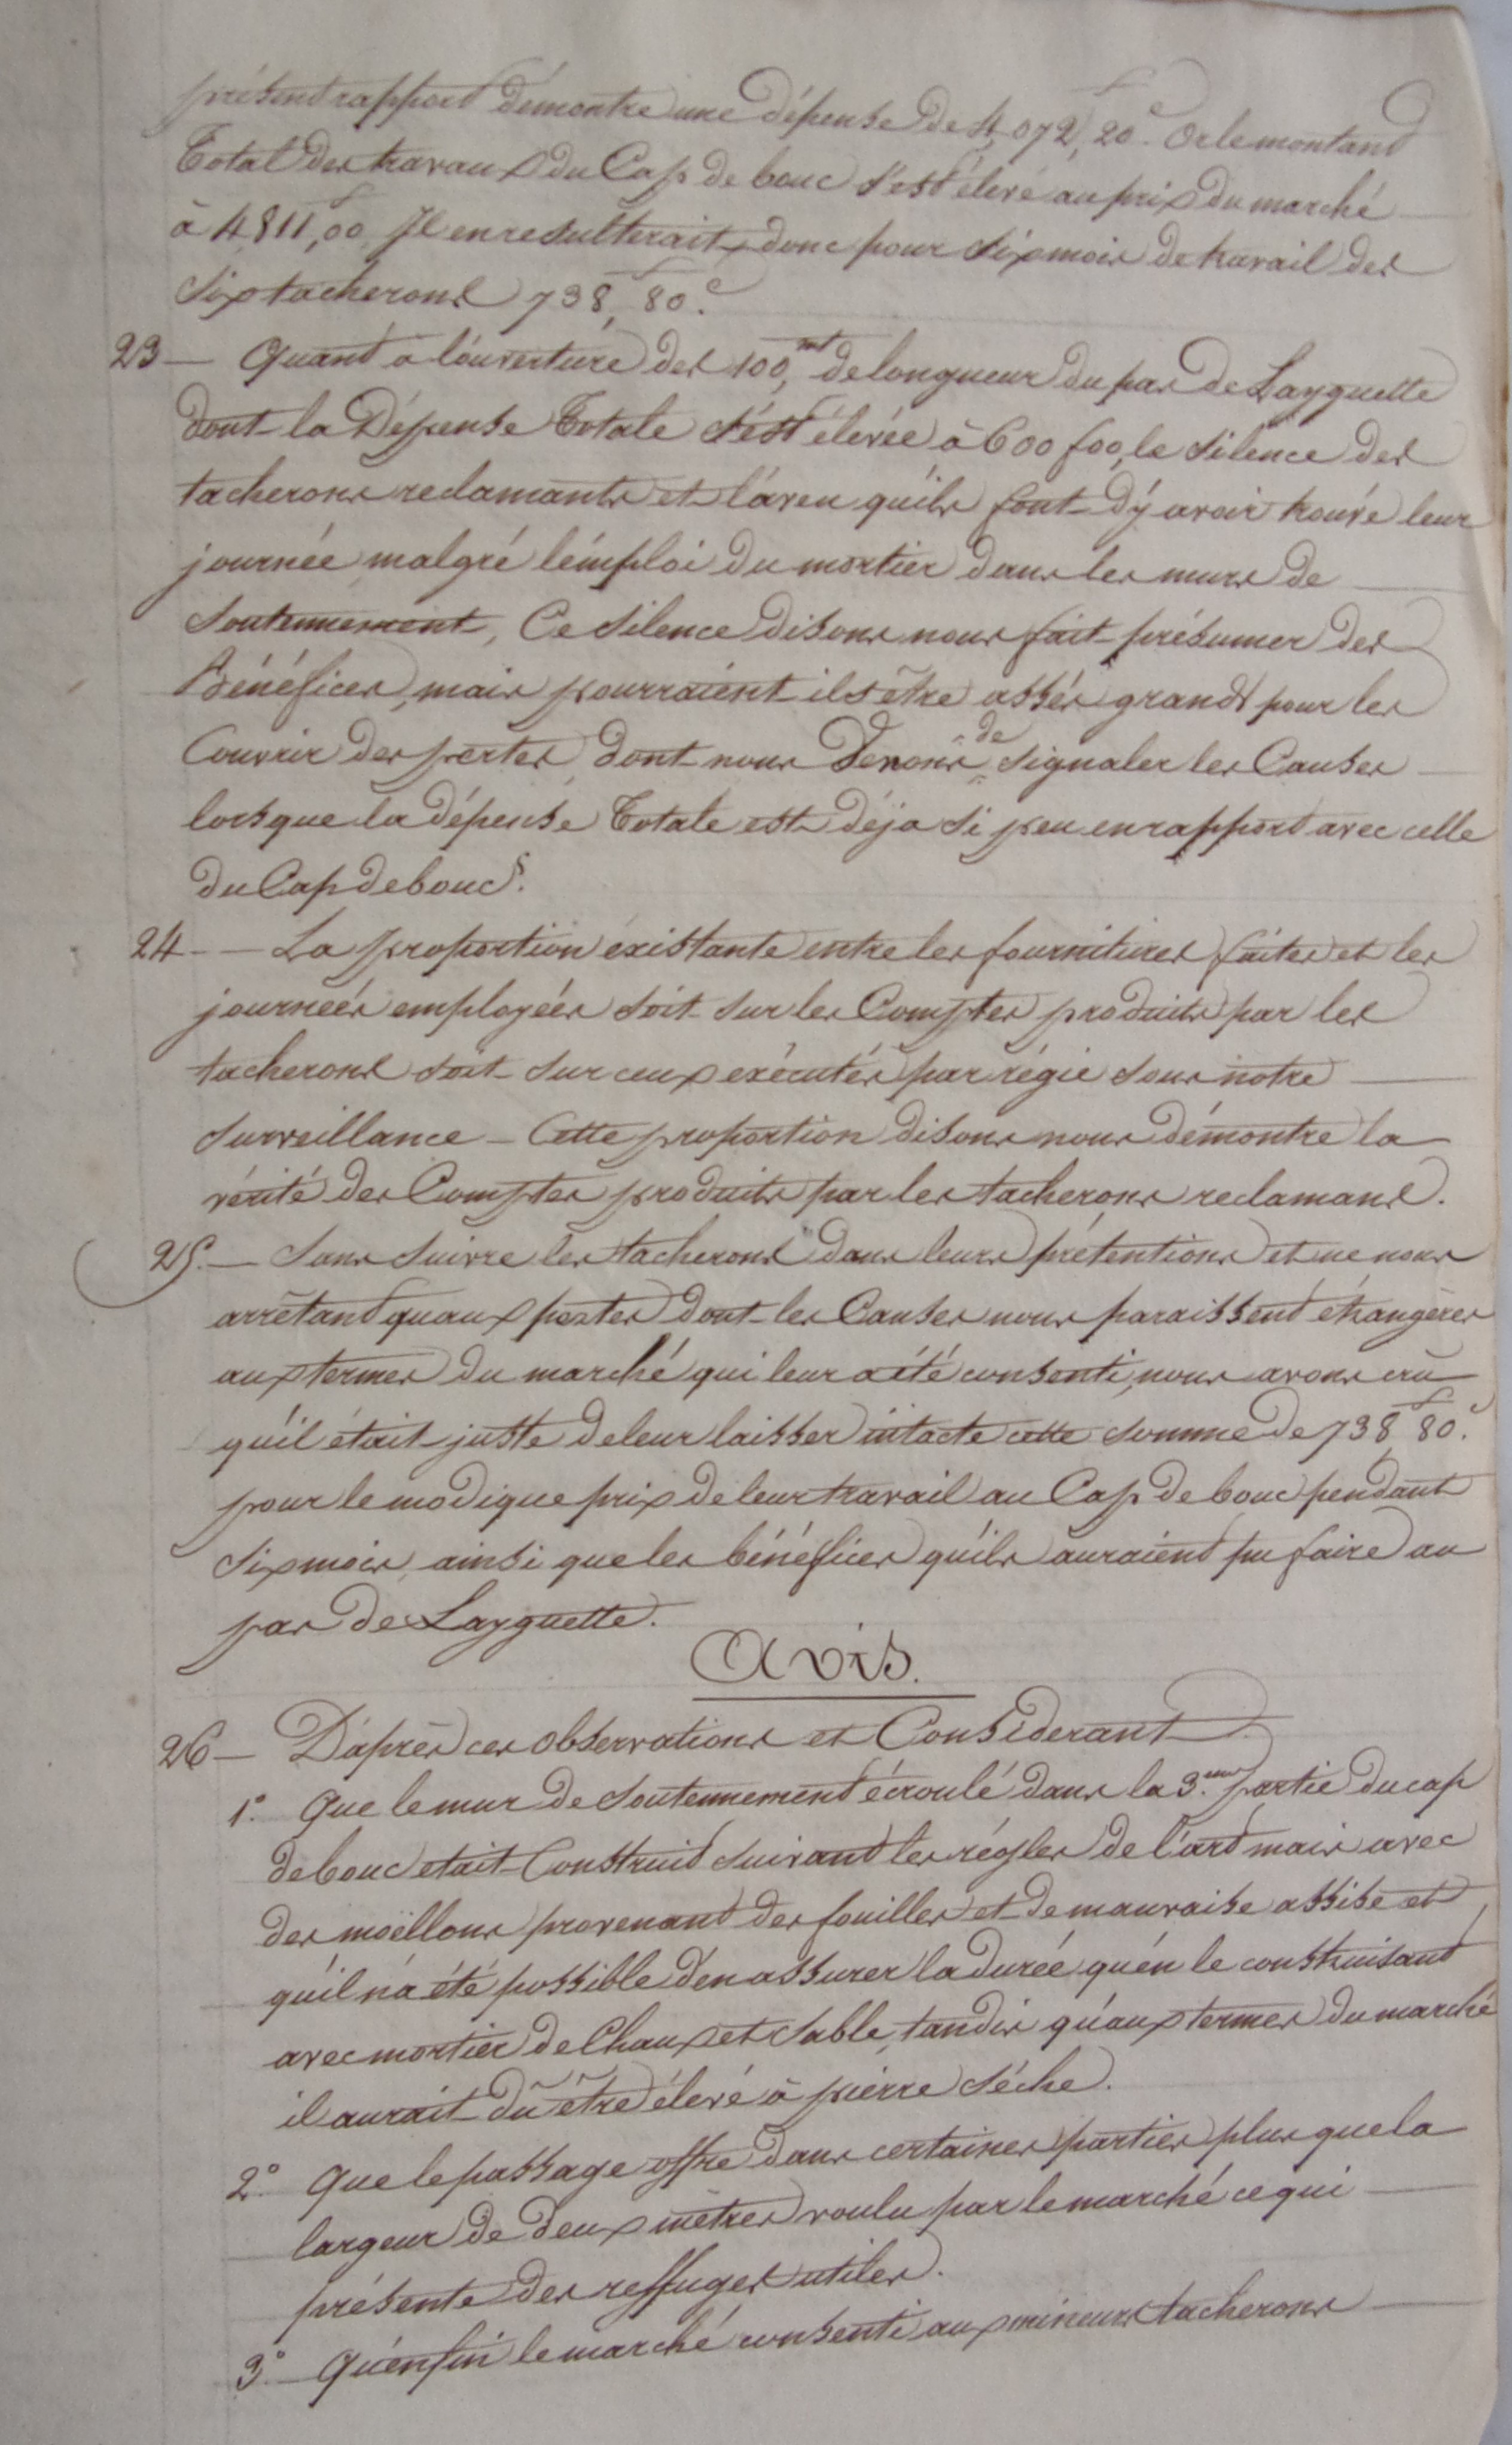 présent rapport démontre une dépense de 4,072f,20c. Or le montant
Total des travaux du Cap de bouc s'est élevé au prix du marché
à 4,811f,00 Il en resulterait donc pour six mois de travail des
six tacherons 738f,80c.
23 — Quant à l'ouverture des 100mt, de longueur du pas de Layguette
dont la Dépense Totale s'est élevée à 600f00, le silence des
tacherons reclamants et l'aveu qu'ils font d'y avoir trouvé leur
journée malgré l'emploi du mortier dans les murs de
soutennement, Ce silence disons nous fait présumer des
Bénéfices, mais pourraient ils être assés grands pour les
Couvrir des pertes, dont nous Venons de signaler les Causes
lorsque la dépense Totale est déja si peu en rapport avec celle
du Cap de bouc.
24 — La proportion existante entre les fournitures faites et les
journeés employeés soit sur les Comptes produits par les
tacherons soit sur ceux exécutés par régie sous notre
surveillance — Cette proportion disons nous démontre la
vérité des Comptes produits par les tacherons reclamans.
25. — Sans suivre les tacherons dans leurs prétentions et ne nous
arrêtant qu'aux pertes dont les Causes nous paraissent étrangères
aux termes du marché qui leur a été consenti, nous avons crû
qu'il était juste de leur laisser intacte cette somme de 738f,80c.
pour le modique prix de leur travail au Cap de bouc pendant
six mois, ainsi que les bénéfices qu'ils auraient pu faire au
pas de Layguette.
Avis.
26 — D'après ces observations et Considerant
1° Que le mur de soutennement écroulé dans la 3.eme partie du cap
de bouc etait Construit suivant les régles de l'art mais avec
des moëllons provenant des fouilles et de mauvaise assise et
qu'il n'a été possible d'en assurer la durée qu'en le construisant
avec mortier de Chaux et sable, tandis qu'aux termes du marché
il aurait dû être élevé à pierre séche.
2° Que le passage offre dans certaines parties plus que la
largeur de deux mètres voulu par le marché ce qui
présente des reffuges utiles.
3° — Qu'enfin le marché consenti aux mineurs tacherons